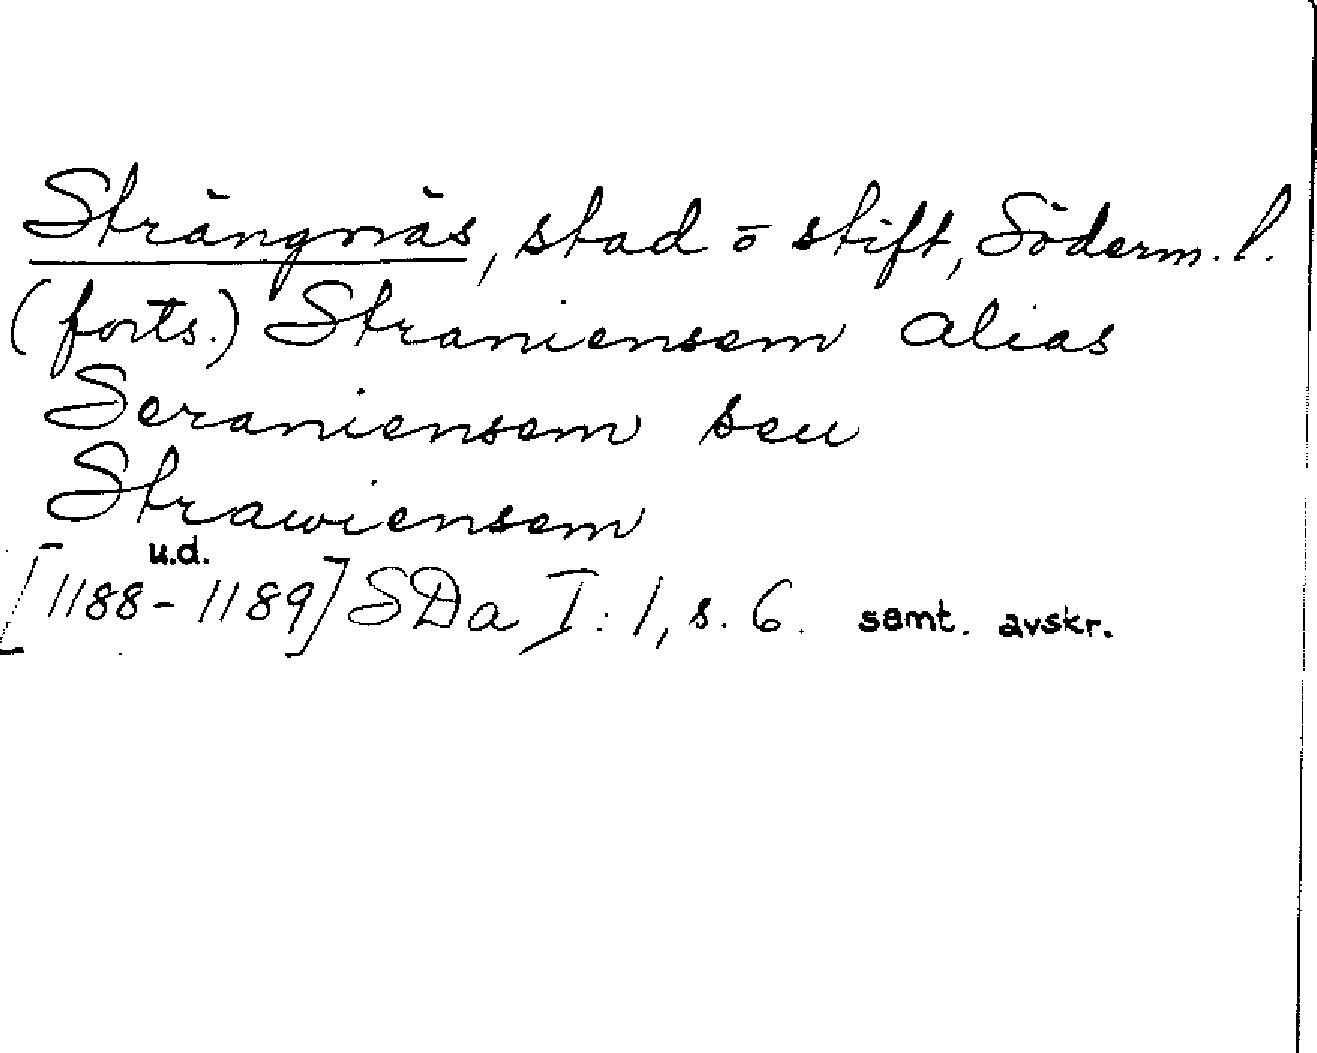 Strängnäs, stad o stift, Söderm. l.
(forts.) Straniensem alias
Seraniensem seu
Strawiensem
u.d.
[1188-1189] SDa I:1, s. 6. samt. avskr.